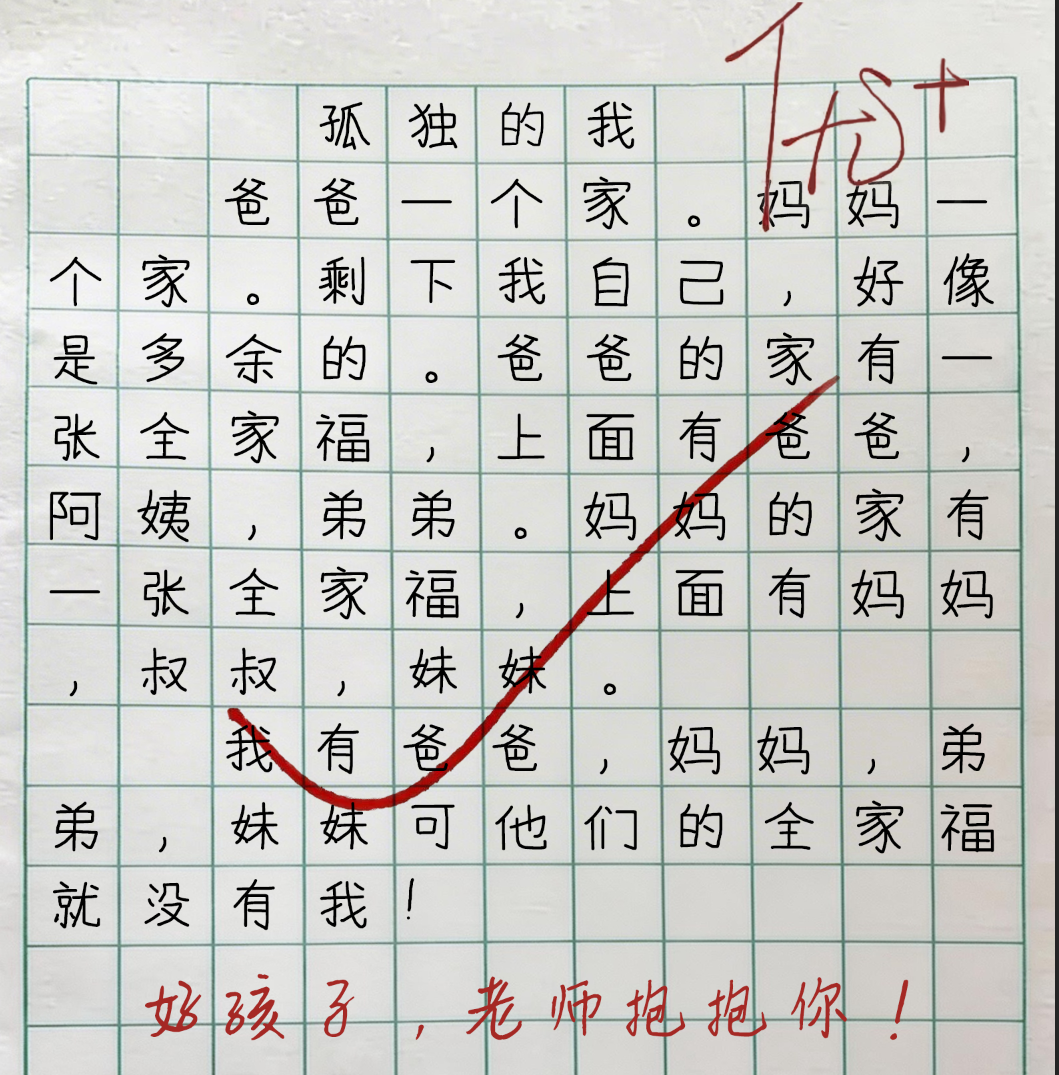 孤独的我
爸爸一个家。妈妈一
个家。剩下我自己，好像
是多余的。爸爸的家有一
张全家福，上面有爸爸，
阿姨，弟弟。妈妈的家有
一张全家福，上面有妈妈
，叔叔，妹妹。
我有爸爸，妈妈，弟
弟，妹妹可他们的全家福
就没有我！
好孩子，老师抱抱你！